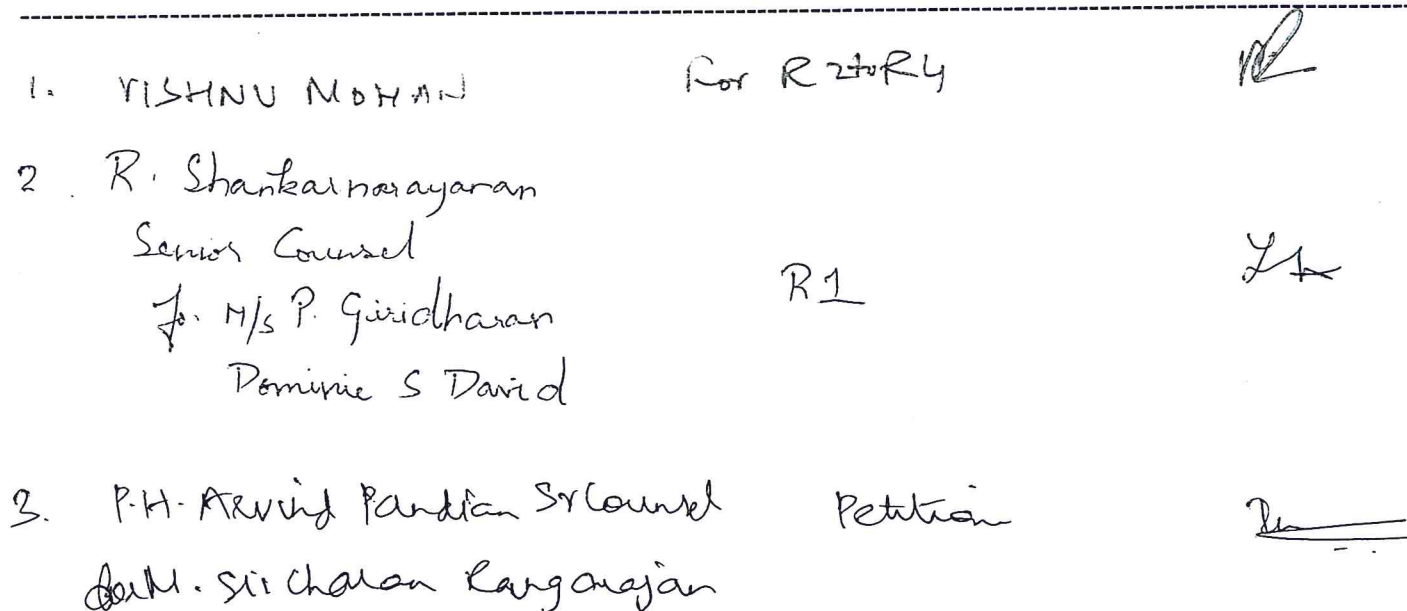 1. VISHNU MOHAN For R2toR4
2. R. Shankarnarayanan
Senior Counsel
R1
for M/s P. Giridharan
Dominic S David
3. P.H. Arvind Pandian Sr Counsel Petition
for M. Sricharan Rangarajan